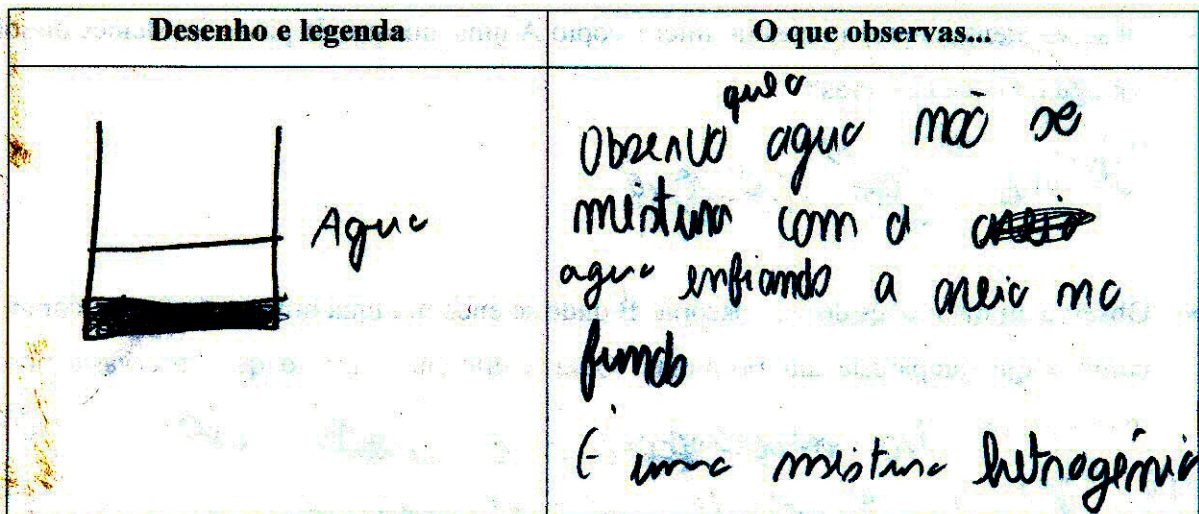 Desenho e legenda
O que observas...
Agua
que a
Observo agua não se
mistura com a
agua enfiando a areia no
fundo
É uma mistura hetrogénia